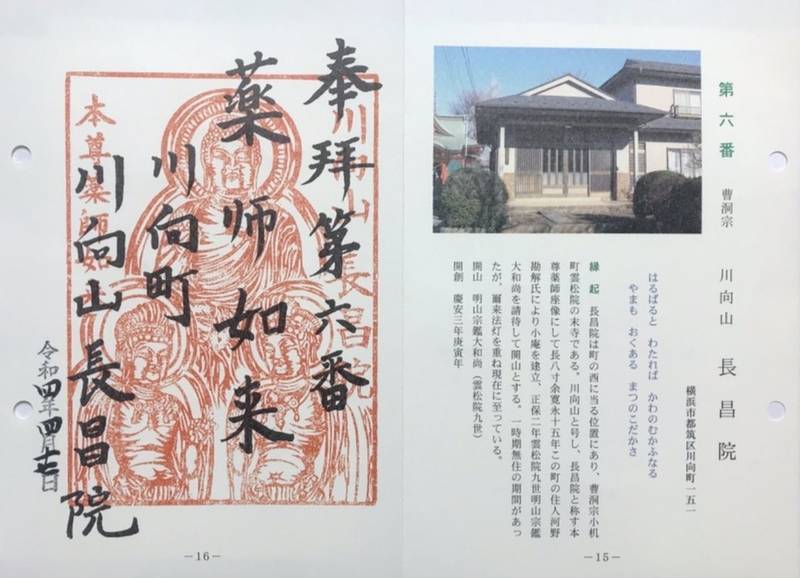 第六番　曹洞宗　川向山　長昌院
横浜市都筑区川向町一五一
はるばると　わたれば　かわのむかふなる
やまも　おくある　まつのこだかさ
縁起　長昌院は町の西に当る位置にあり、曹洞宗小机
町雲松院の末寺である。川向山と号し、長昌院と称す本
尊薬師座像にして長八寸余寛永十五年この町の住人河野
勘解氏により小庵を建立、正保二年雲松院九世明山宗鑑
大和尚を請待して開山とする。一時期無住の期間があっ
たが、爾来法灯を重ね現在に至っている。
開山　明山宗鑑大和尚（雲松院九世）
開創　慶安三年庚寅年
―15―
奉拜第六番
薬師如来
川向町
川向山長昌院
令和四年四月十七日
川向山長昌院
本尊薬師如
―16―